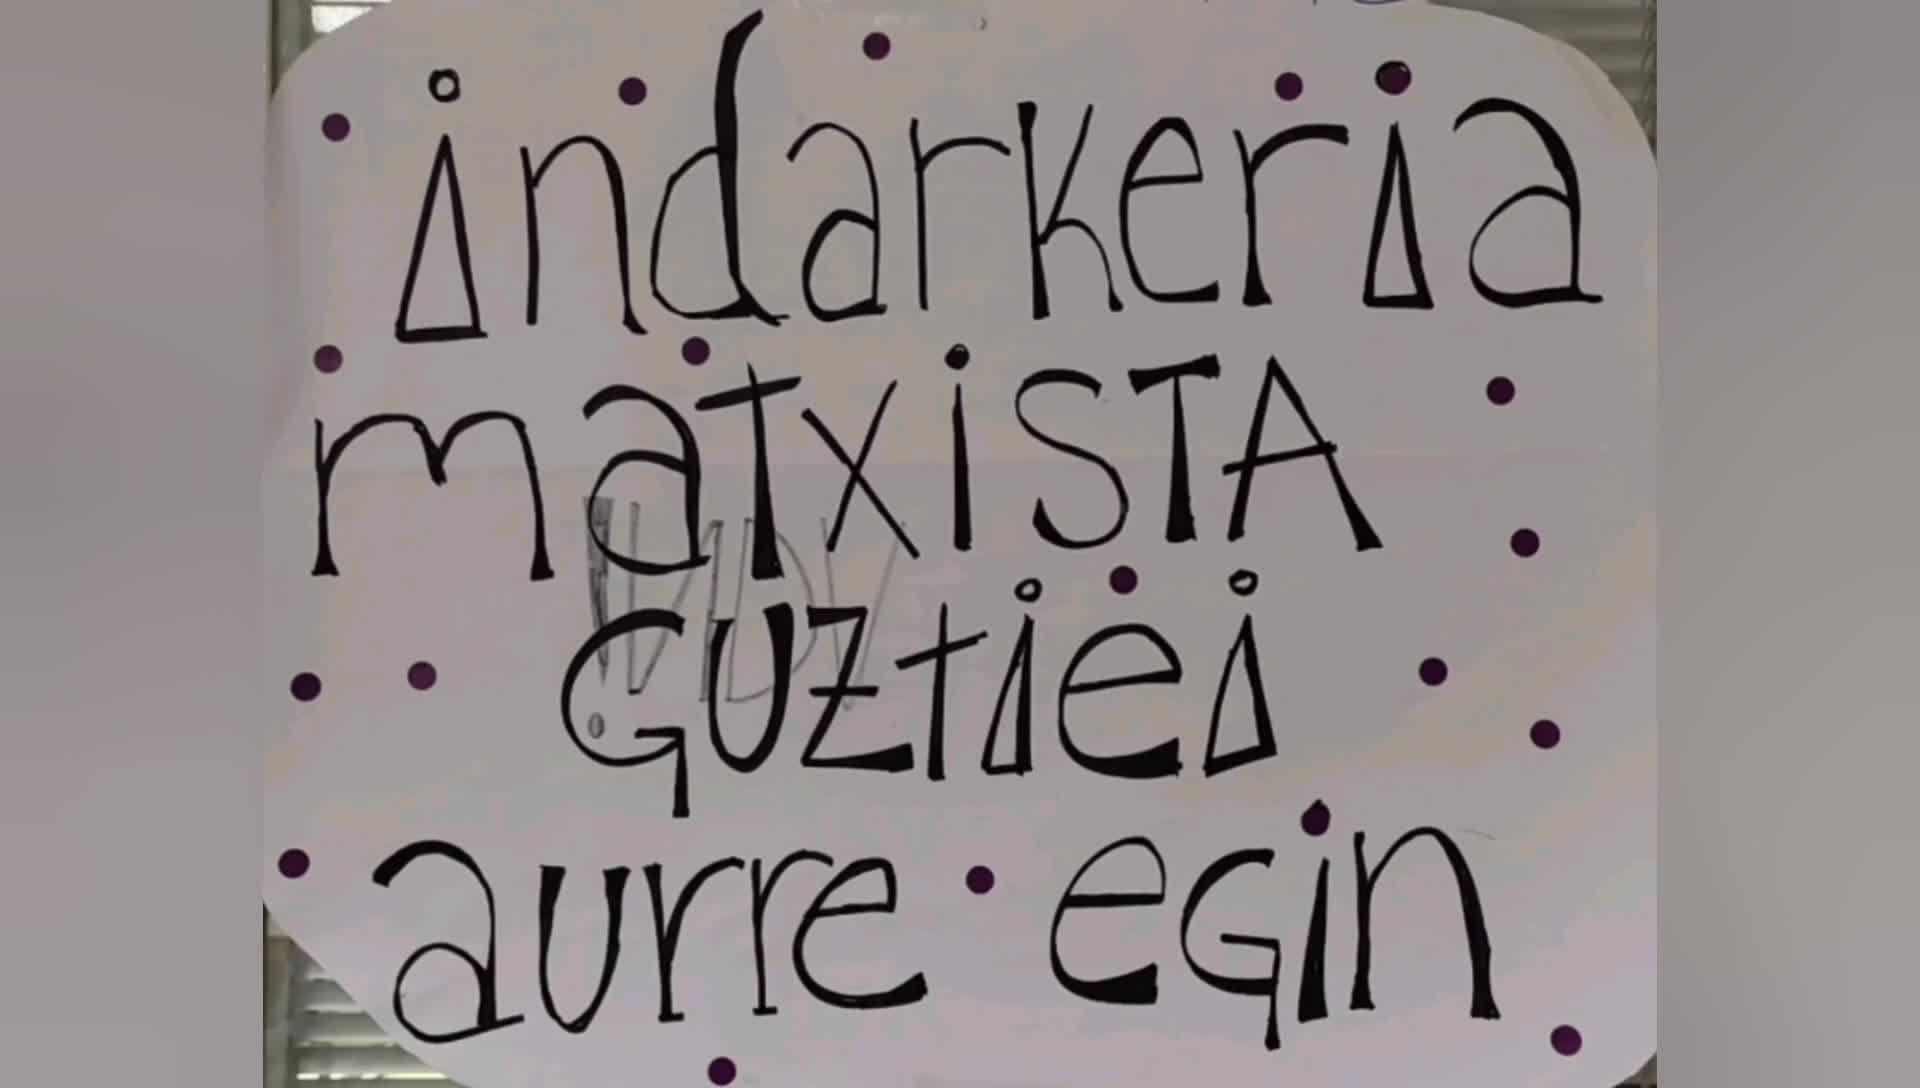 indarkeria
matxisTA
Guztiei
aurre eGin